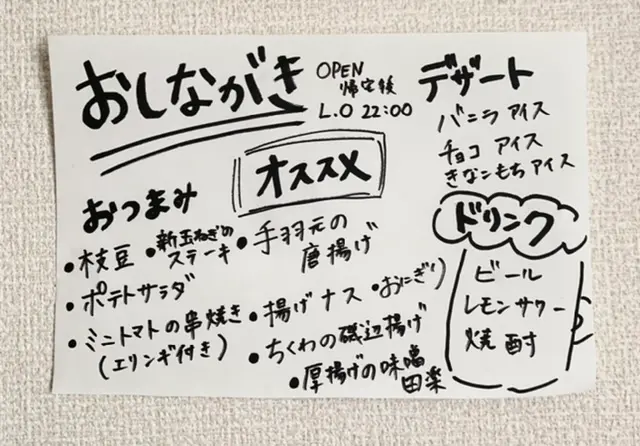 おしながき
OPEN
帰宅後
L.O 22:00
おつまみ
・枝豆
・新玉ねぎの
ステーキ
・ポテトサラダ
・ミニトマトの串焼き
(エリンギ付き)
オススメ
・手羽元の
唐揚げ
・揚げナス
・おにぎり
・ちくわの磯辺揚げ
・厚揚げの味噌
田楽
デザート
バニラアイス
チョコアイス
きなこもちアイス
ドリンク
ビール
レモンサワー
焼酎